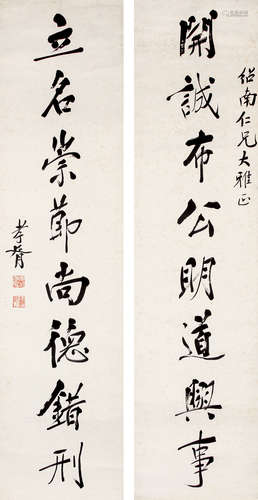 紹南仁兄大雅正
開誠布公明道興事
立名崇節尚德錯刑
孝胥